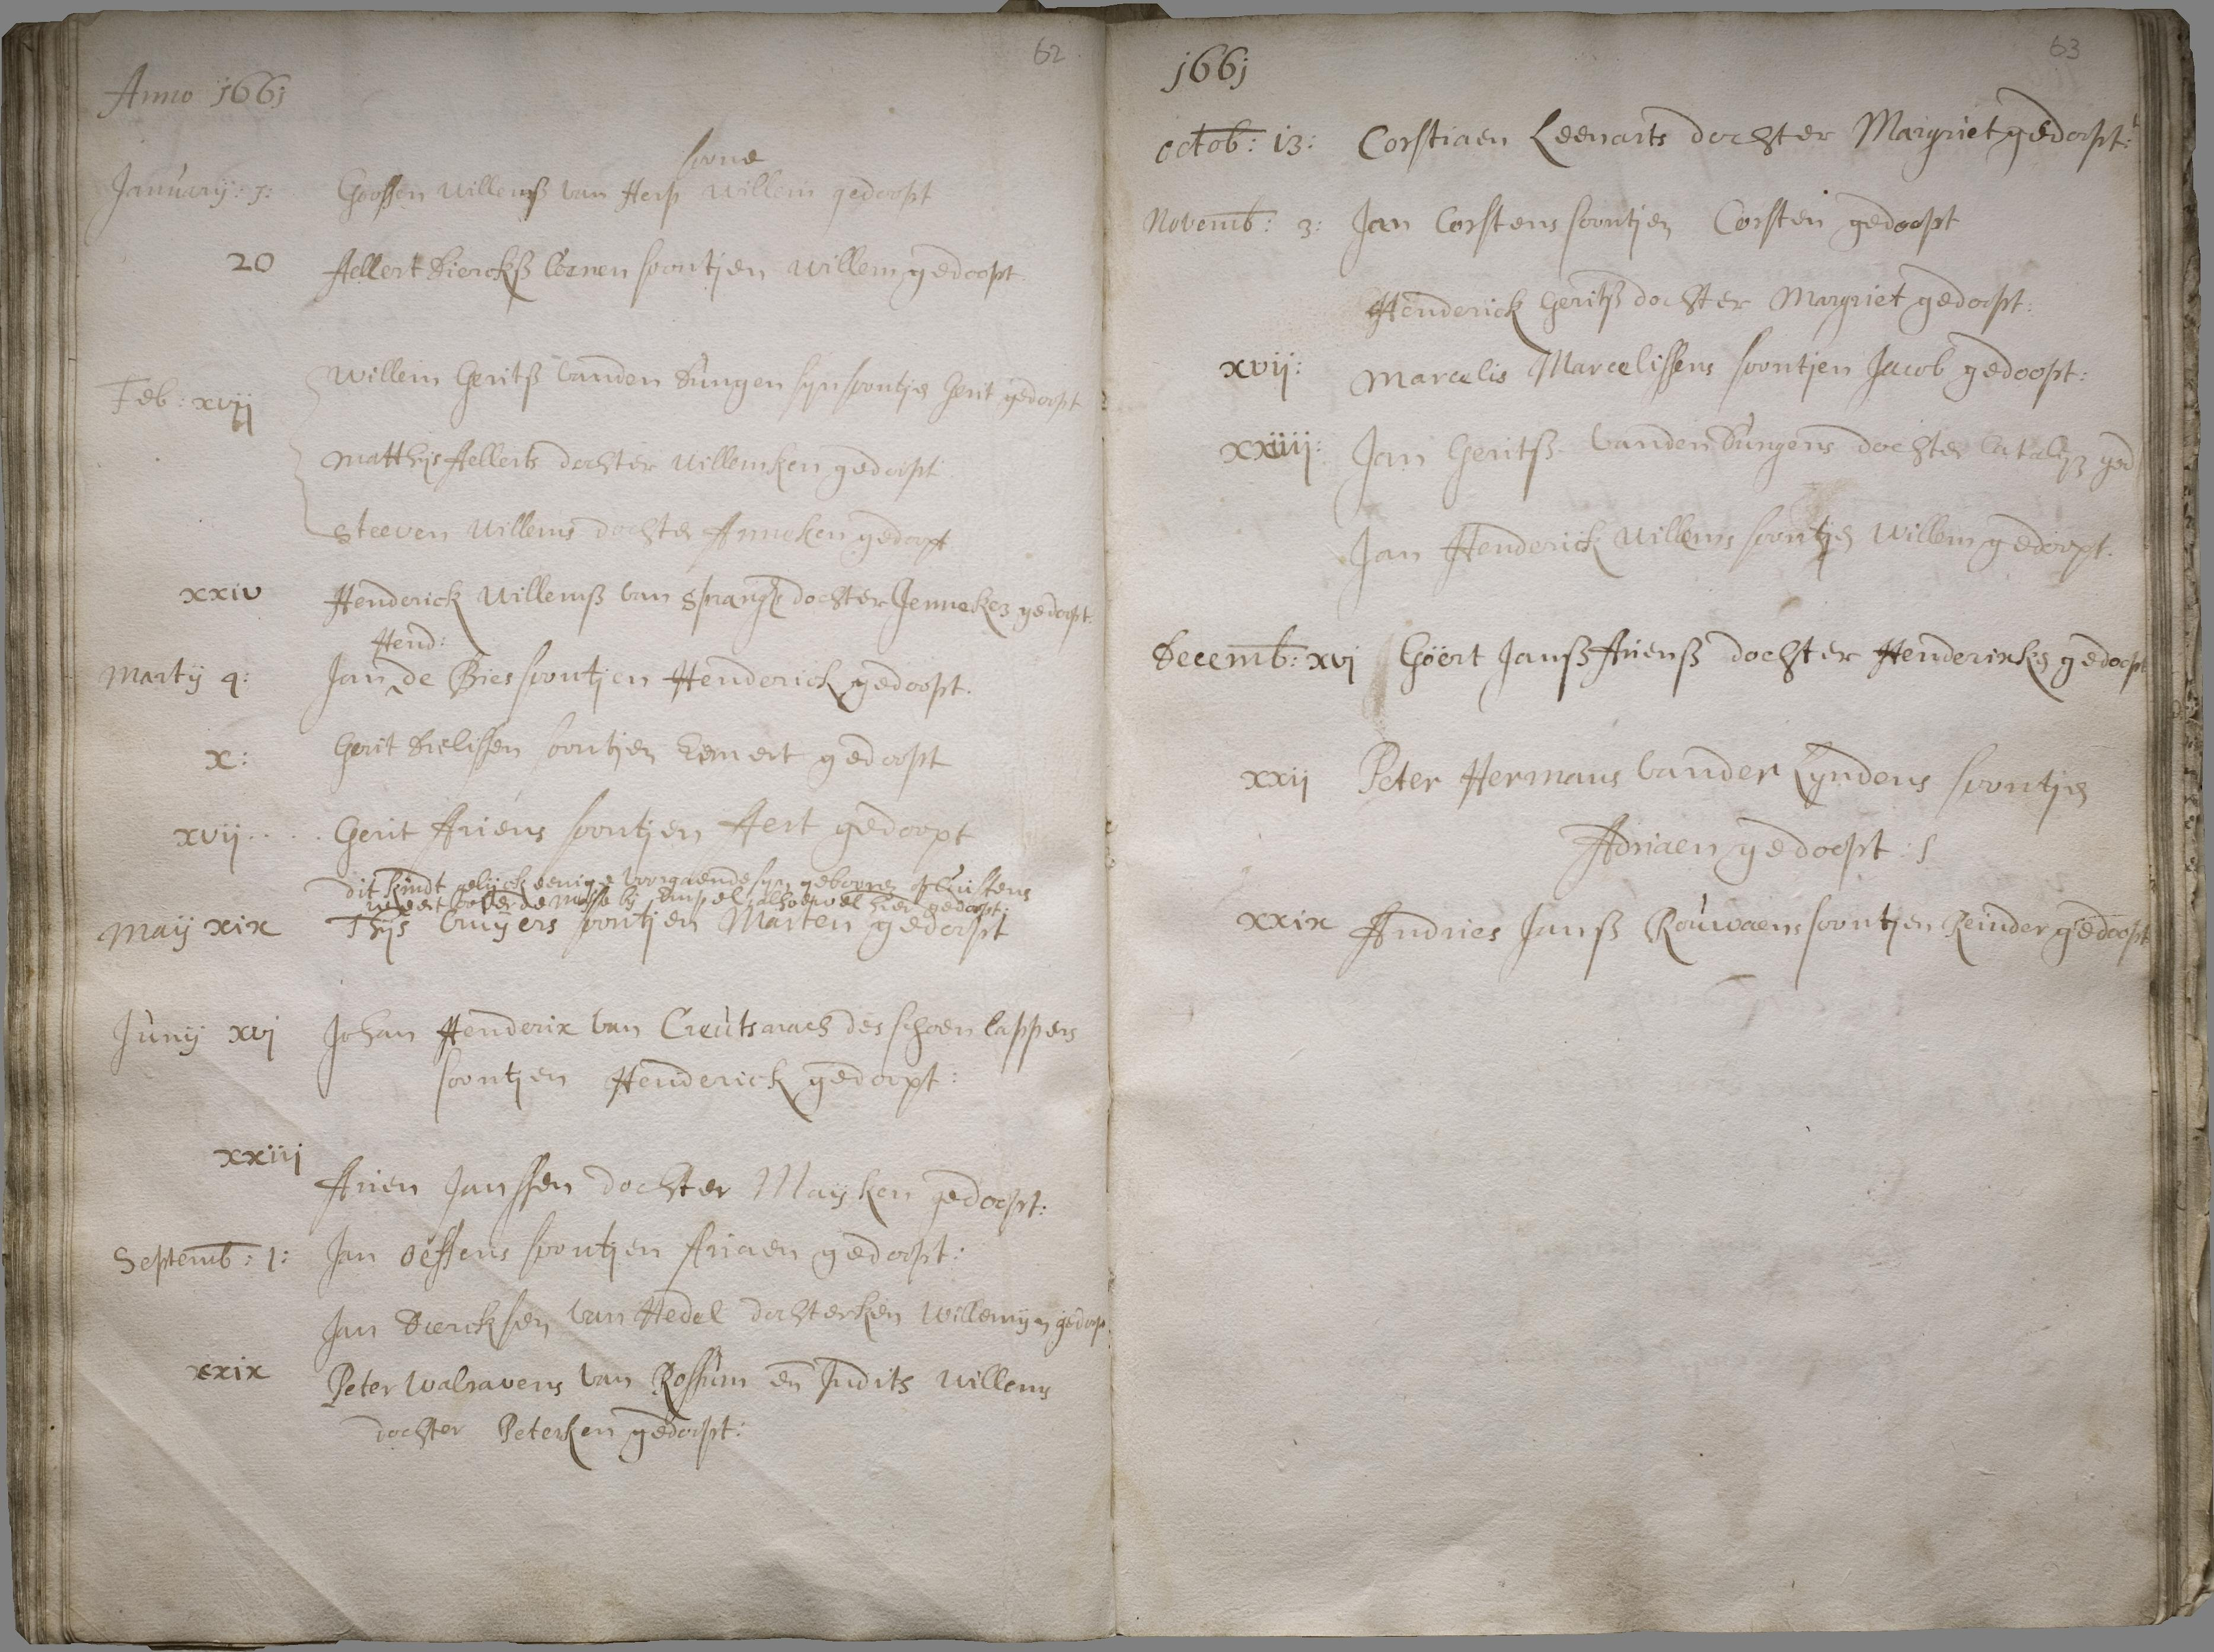 62
Anno 1661
soone
January: 5: Goossen Willemß van Herp Willem gedoopt
20 Aellert Dierckß Coenen soontjen Willem gedoopt
Willem Geritß vanden Dungen syn soontje Gerit gedoopt
Feb: xvij
Matthijs Aellerts dochter Willemken gedoopt
Steeven Willems dochter Anneken gedoopt
xxiv Henderick Willemß van Sprangh dochter Jenneken gedoopt.
Hend:
Martij 4: Jan de Bies soontjen Henderick gedoopt.
x: Gerit Dielissen soontjen Eemert gedoopt
xvij.... Gerit Ariens soontjen Aert gedoopt
dit kindt gelijck eenige voorgaende syn geboren
over de Mase bij Empel, alhoewel hier gedoopt:
Maij xix Thijs Cruijers soontjen Marten gedoopt
Junij xvj Johan Henderix van Creutsnach des schoenlappers
soontjen Henderick gedoopt:
xxiij
Arien Janssen dochter Maijken gedoopt:
Septemb: 1: Jan Oessens soontjen Ariaen gedoopt:
Jan Diercksen van Hedel dochterken Willemijn gedoop
xxix Peter Walravens van Rossum en Judits Willems
dochter Peterken gedoopt:
63
1661
Octob: 13: Corstiaen Leenarts dochter Margriet gedoopt:
Novemb: 3: Jan Corstens soontjen Corsten gedoopt
Henderick Geritß dochter Margriet gedoopt:
xvij: Marcelis Marcelissens soontjen Jacob gedoopt:
xxiiij: Jan Geritß vanden Dungens dochter Catalijn ged
Jan Henderick Willems soontjen Willem gedoopt.
Decemb: xvj Goört Janß Arienß dochter Henderixke gedoopt
xxij Peter Hermans vander Lyndens soontjen
Adriaen gedoopt:
xxix Andries Janß Rouwaens soontjen Reinder gedoopt